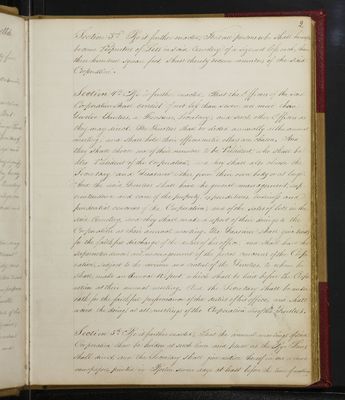 2
Section 3d. Be it further enacted, That all persons who shall hereafter
become Proprietors of Lots in said Cemetery of a size not less each, than
three hundred square feet shall thereby become members of the said
Corporation.
Section 4th. Be it further enacted, That the Officers of the said
Corporation shall consist of not less than seven nor more than
twelve Trustees, a Treasurer, Secretary, and such other Officers as
they may direct. The Trustees shall be elected annually at the annual
meeting, and shall hold their offices until others are chosen. And
they shall choose one of their number to be President who shall be
also President of the Corporation, and they shall also choose the
Secretary and Treasurer either from their own body or at large.
And the said Trustees shall have the general management, super
intendence and care of the property, expenditures, business and
prudential concerns of the Corporation, and of the sales of lots in the
said Cemetery, and they shall make a report of their doings to the
Corporation at their annual meeting. The Treasurer shall give bonds
for the faithful discharge of the duties of his office, and shall have the
superintendence and management of the fiscal concerns of the Corpo
ration, subject to the revision and control of the Trustees, to whom he
shall make an Annual Report, which shall be laid before the Corpo
ration at their annual meeting. And the Secretary shall be under
oath for the faithful performance of the duties of his office, and shall
record the doings at all meetings of the Corporation and of the Trustees.
Section 5th. Be it further enacted, That the annual meetings of the
Corporation shall be holden at such time and place as the By-Laws
shall direct, and the Secretary shall give notice thereof in one or more
newspapers printed in Boston seven days at least before the time of meeting